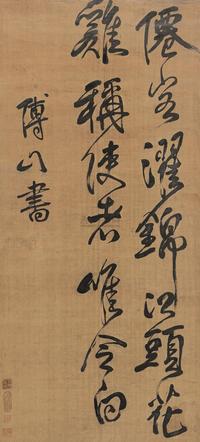 僊客濯錦江頭花
雞稱使者唯令白
傅山書